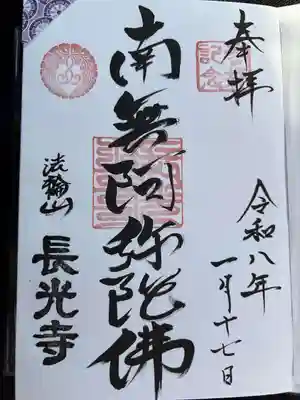 奉拝
記念
令和八年
一月十七日
南無阿弥陀佛
法輪山
長光寺